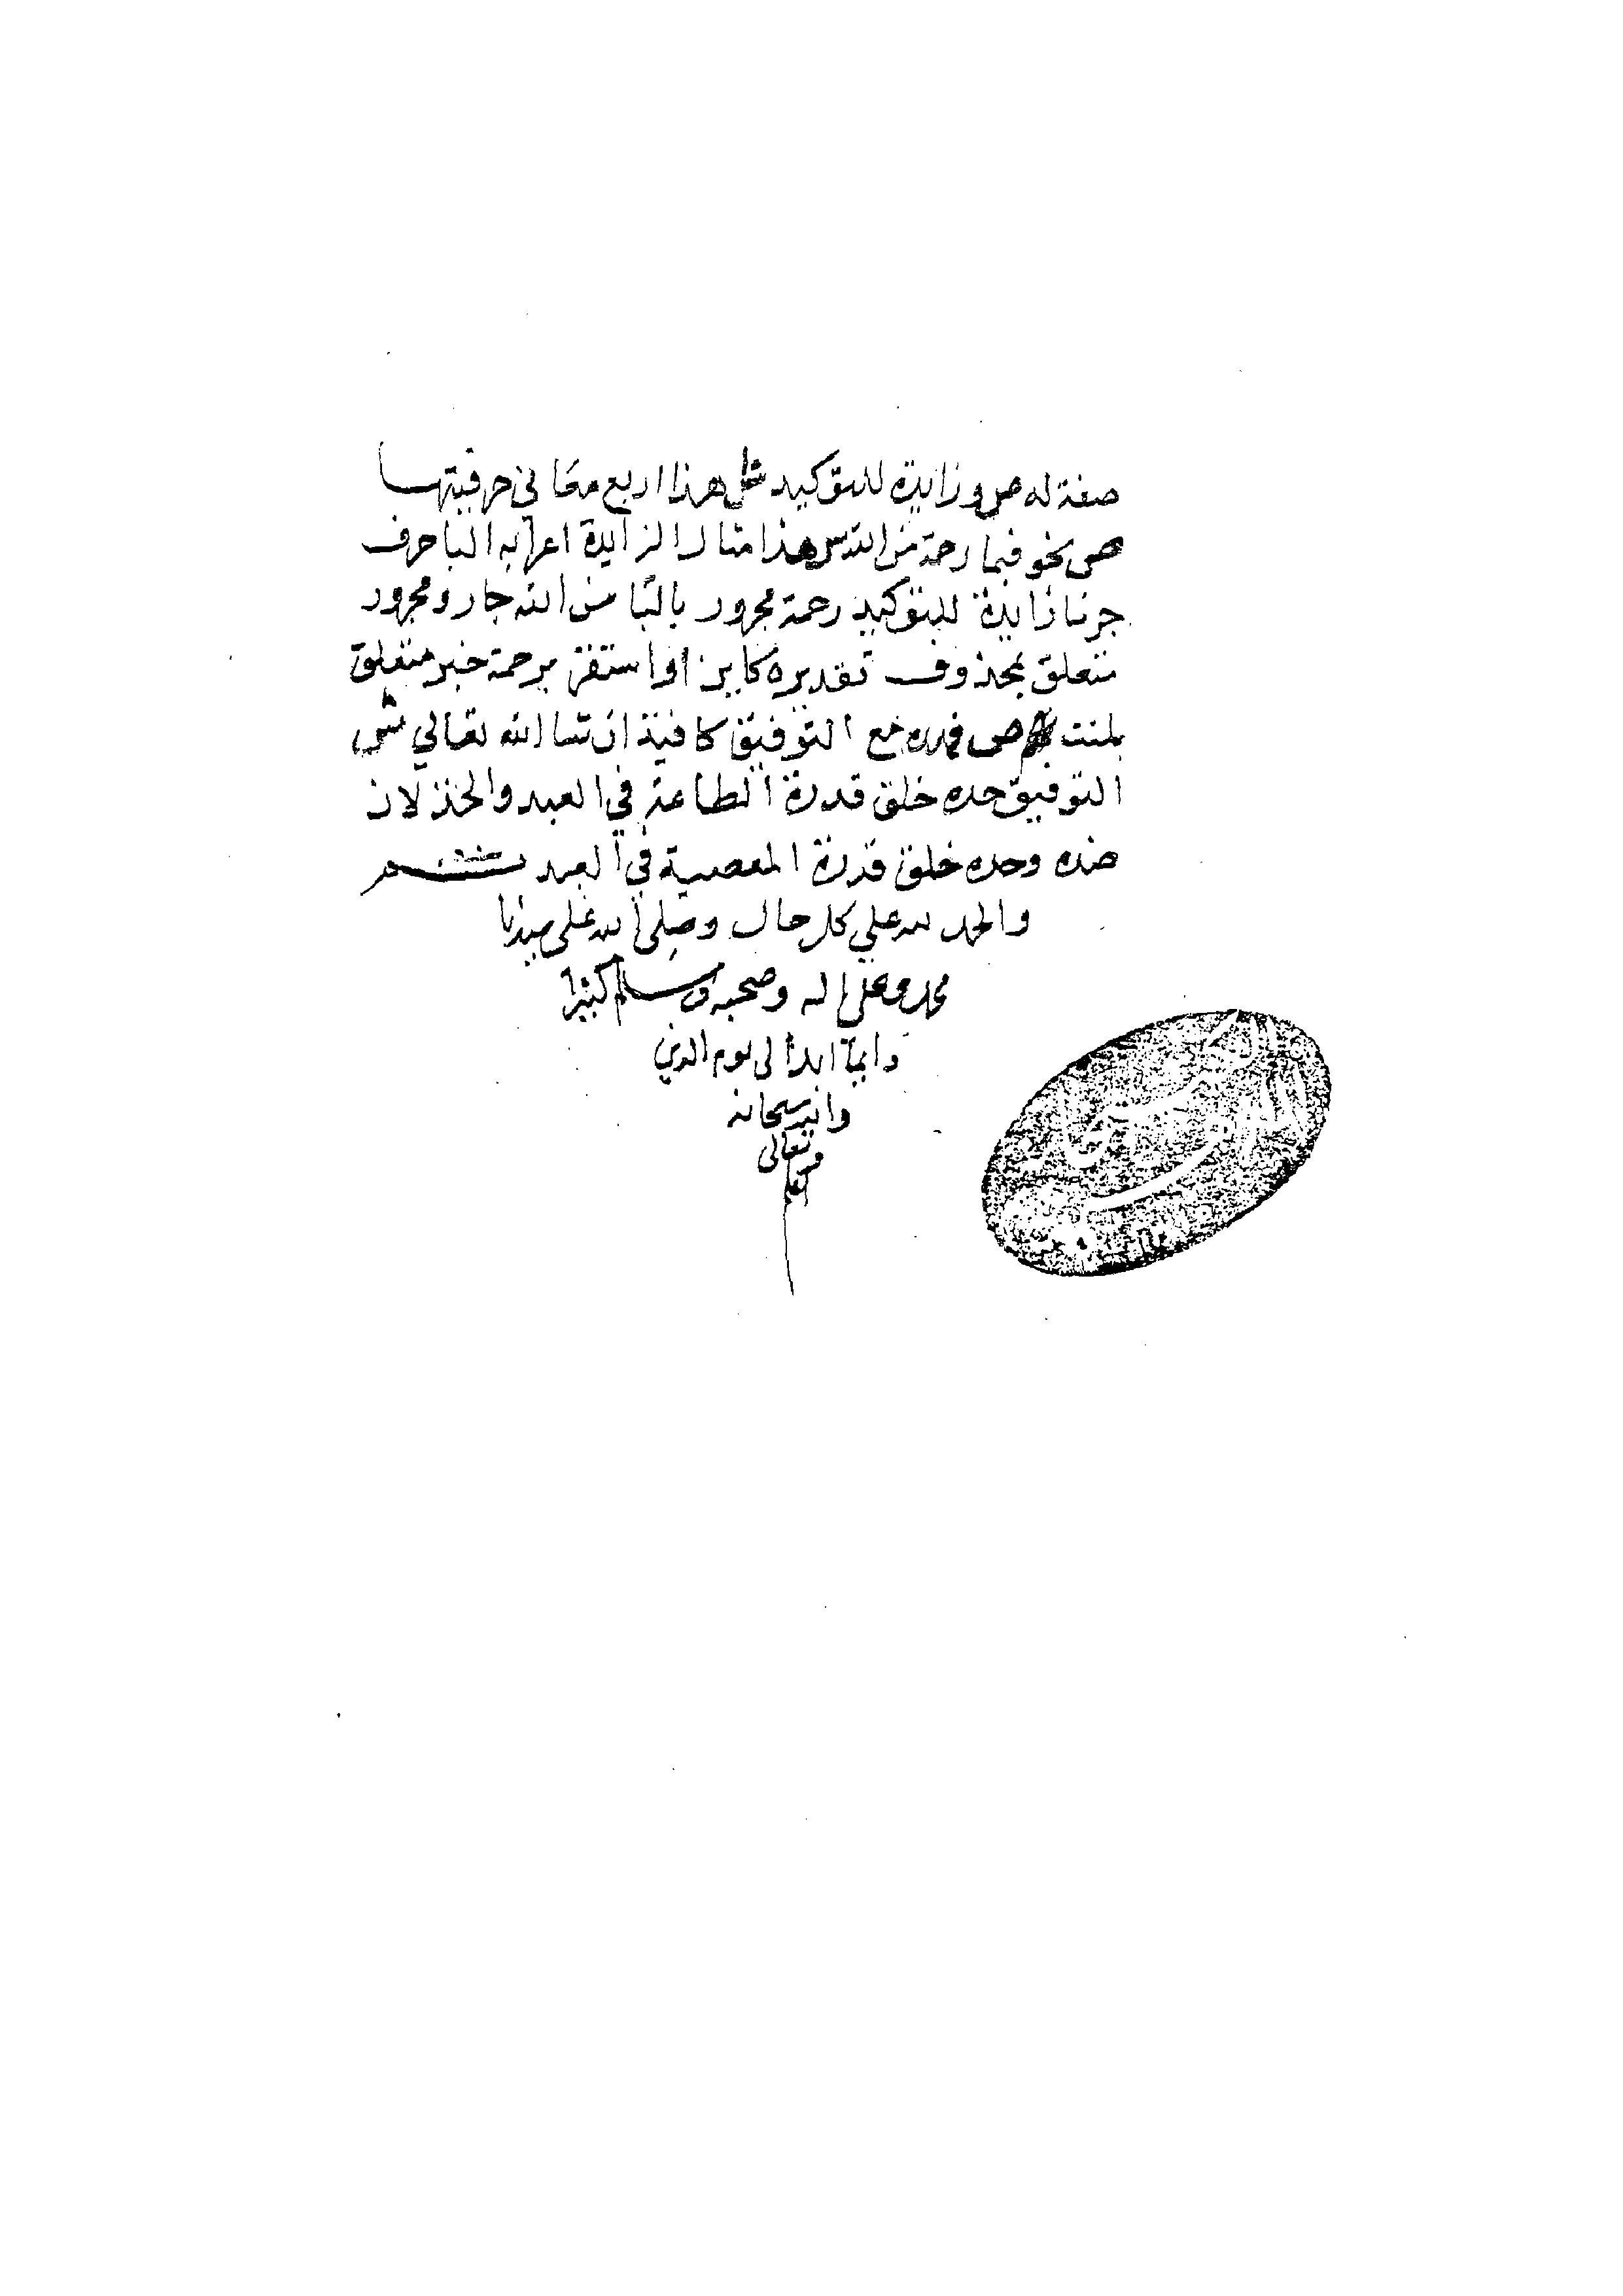 صفة له ص وزايدة للتوكيد ش هذا اربع معاني حرفيتها
ص نحو فبما رحمة من الله ش هذا مثال الزايدة اعرابه البا حرف
جر ما زايدة للتوكيد رحمة مجرور بالبا من الله جار ومجرور
متعلق بمحذوف تقديره كاين او استقر برحمة خبر متعلق
بلنت ص فهذه مع التوفيق كافية ان شا الله تعالي ش
التوفيق حده خلق قدرة الطاعة في العبد والخذلان
ضده وحده خلق قدرة المعصية في العبد
والحمد لله علي كل حال وصلى الله على سيدنا
محمد وعلى اله وصحبه وسلم كثيرا
دايما ابدا الى يوم الدين
والله سبحانه
وتعالى
اعلم